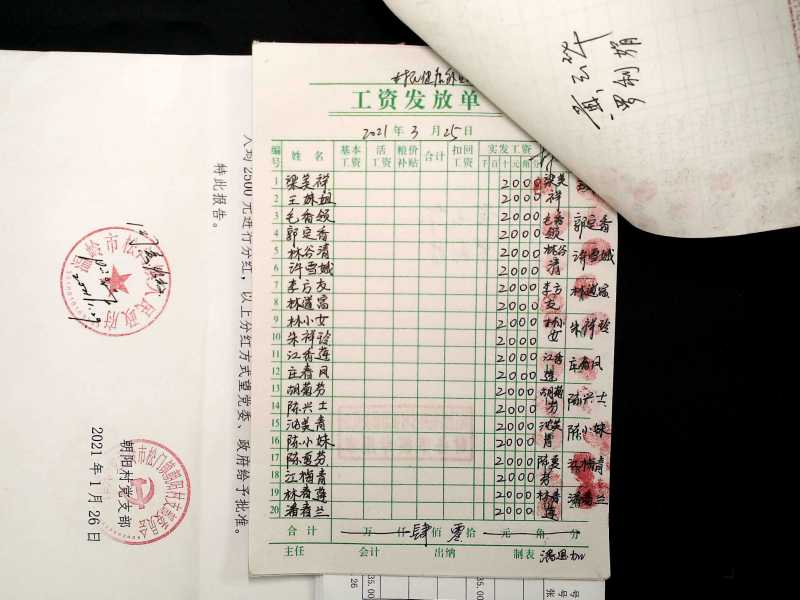 工资发放单
2021年3月25日
编号 姓名 基本工资 活工资 粮价补贴 合计 扣回工资 实发工资
千百十元角分
1 梁美祥 2000 梁美祥
2 王妹姐 2000
3 毛香领 2000 毛香领
4 郭定香 2000 郭定香
5 林谷清 2000 林谷清
6 许雪城 2000 许雪城
7 李方友 2000 李方友
8 林道富 2000 林道富
9 林小女 2000 林小女
10 朱祥玲 2000 朱祥玲
11 江香莲 2000 江香莲
12 庄春凤 2000 庄春凤
13 胡菊芬 2000 胡菊芬
14 陈兴士 2000 陈兴士
15 沈美青 2000 沈美青
16 陈小妹 2000 陈小妹
17 陈夏芬 2000 陈夏芬
18 江梅青 2000 江梅青
19 林香莲 2000 林香莲
20 潘春兰 2000 潘春兰
合计 万 仟肆佰零拾 元 角 分
主任 会计 出纳 制表
罗利娟
人均2500元进行分红，以上分红方式望党委、政府给予批准。
特此报告。
朝阳村党支部
2021年1月26日